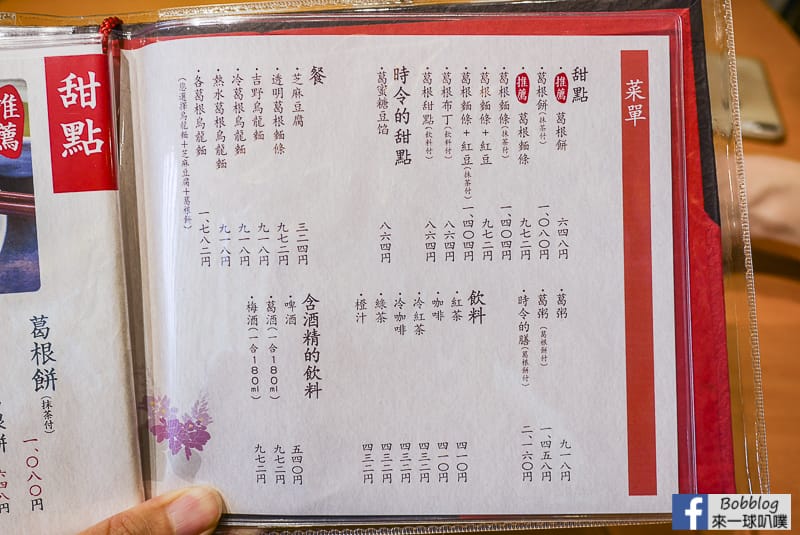 菜單
甜點
・推薦 葛根餅 六四八円
・葛根餅(抹茶付) 一、〇八〇円
・推薦 葛根麵條 九七二円
・葛根麵條(抹茶付) 一、四〇四円
・葛根麵條+紅豆 九七二円
・葛根麵條+紅豆(抹茶付) 一、四〇四円
・葛根布丁(飲料付) 八六四円
・葛根甜點(飲料付) 八六四円
時令的甜點
・葛蜜糖豆餡 八六四円
餐
・芝麻豆腐 三二四円
・透明葛根麵條 九七二円
・吉野烏龍麵 九一八円
・冷葛根烏龍麵 九一八円
・熱水葛根烏龍麵 九一八円
・各葛根烏龍麵 一、七八二円
(您選擇烏龍麵+芝麻豆腐+葛根餅)
・葛粥 九一八円
・葛粥(葛根餅付) 一、四五八円
・時令的膳(葛根餅付) 二、一六〇円
飲料
・紅茶 四一〇円
・咖啡 四一〇円
・冷紅茶 四三二円
・冷咖啡 四三二円
・綠茶 四三二円
・橙汁 四三二円
含酒精的飲料
・啤酒 五四〇円
・葛酒(一合180ml) 九七二円
・梅酒(一合180ml) 九七二円
甜點
推薦
葛根餅(抹茶付) 一、〇八〇円
根餅 六四八円
Bobblog
來一球叭噗